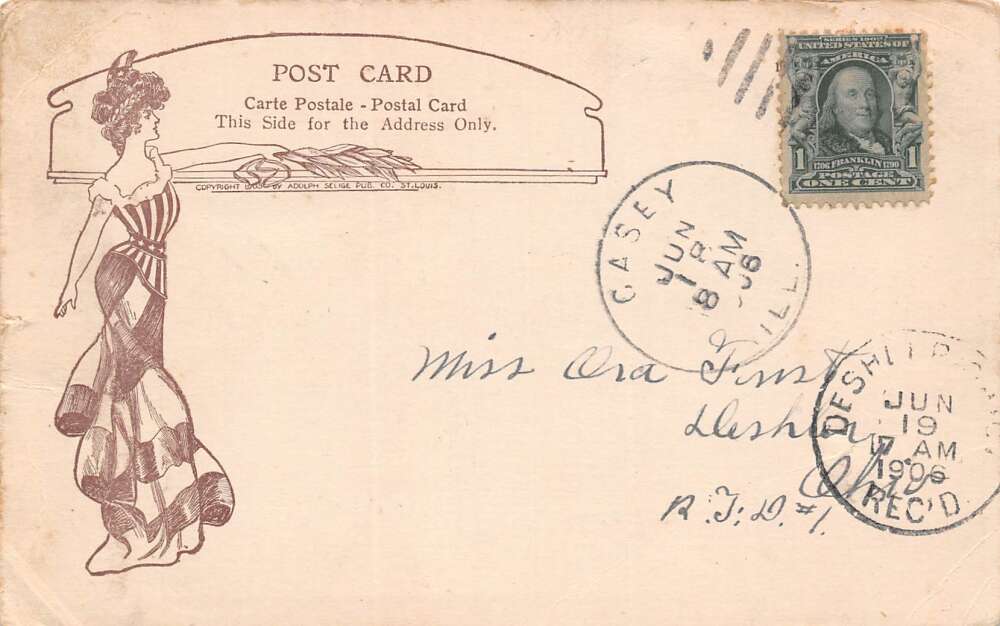 POST CARD
Carte Postale - Postal Card
This Side for the Address Only.
COPYRIGHT 1905 BY ADOLPH SELIGE PUB. CO. ST. LOUIS.
SERIES 1902
UNITED STATES OF
AMERICA
1 1
1706 FRANKLIN 1790
POSTAGE
ONE CENT
CASEY
JUN
8 AM
06
ILL.
Miss Ora
Deshler
Ohio
R.F.D. #1
DESHLER
JUN
19
7 AM
1906
REC'D.